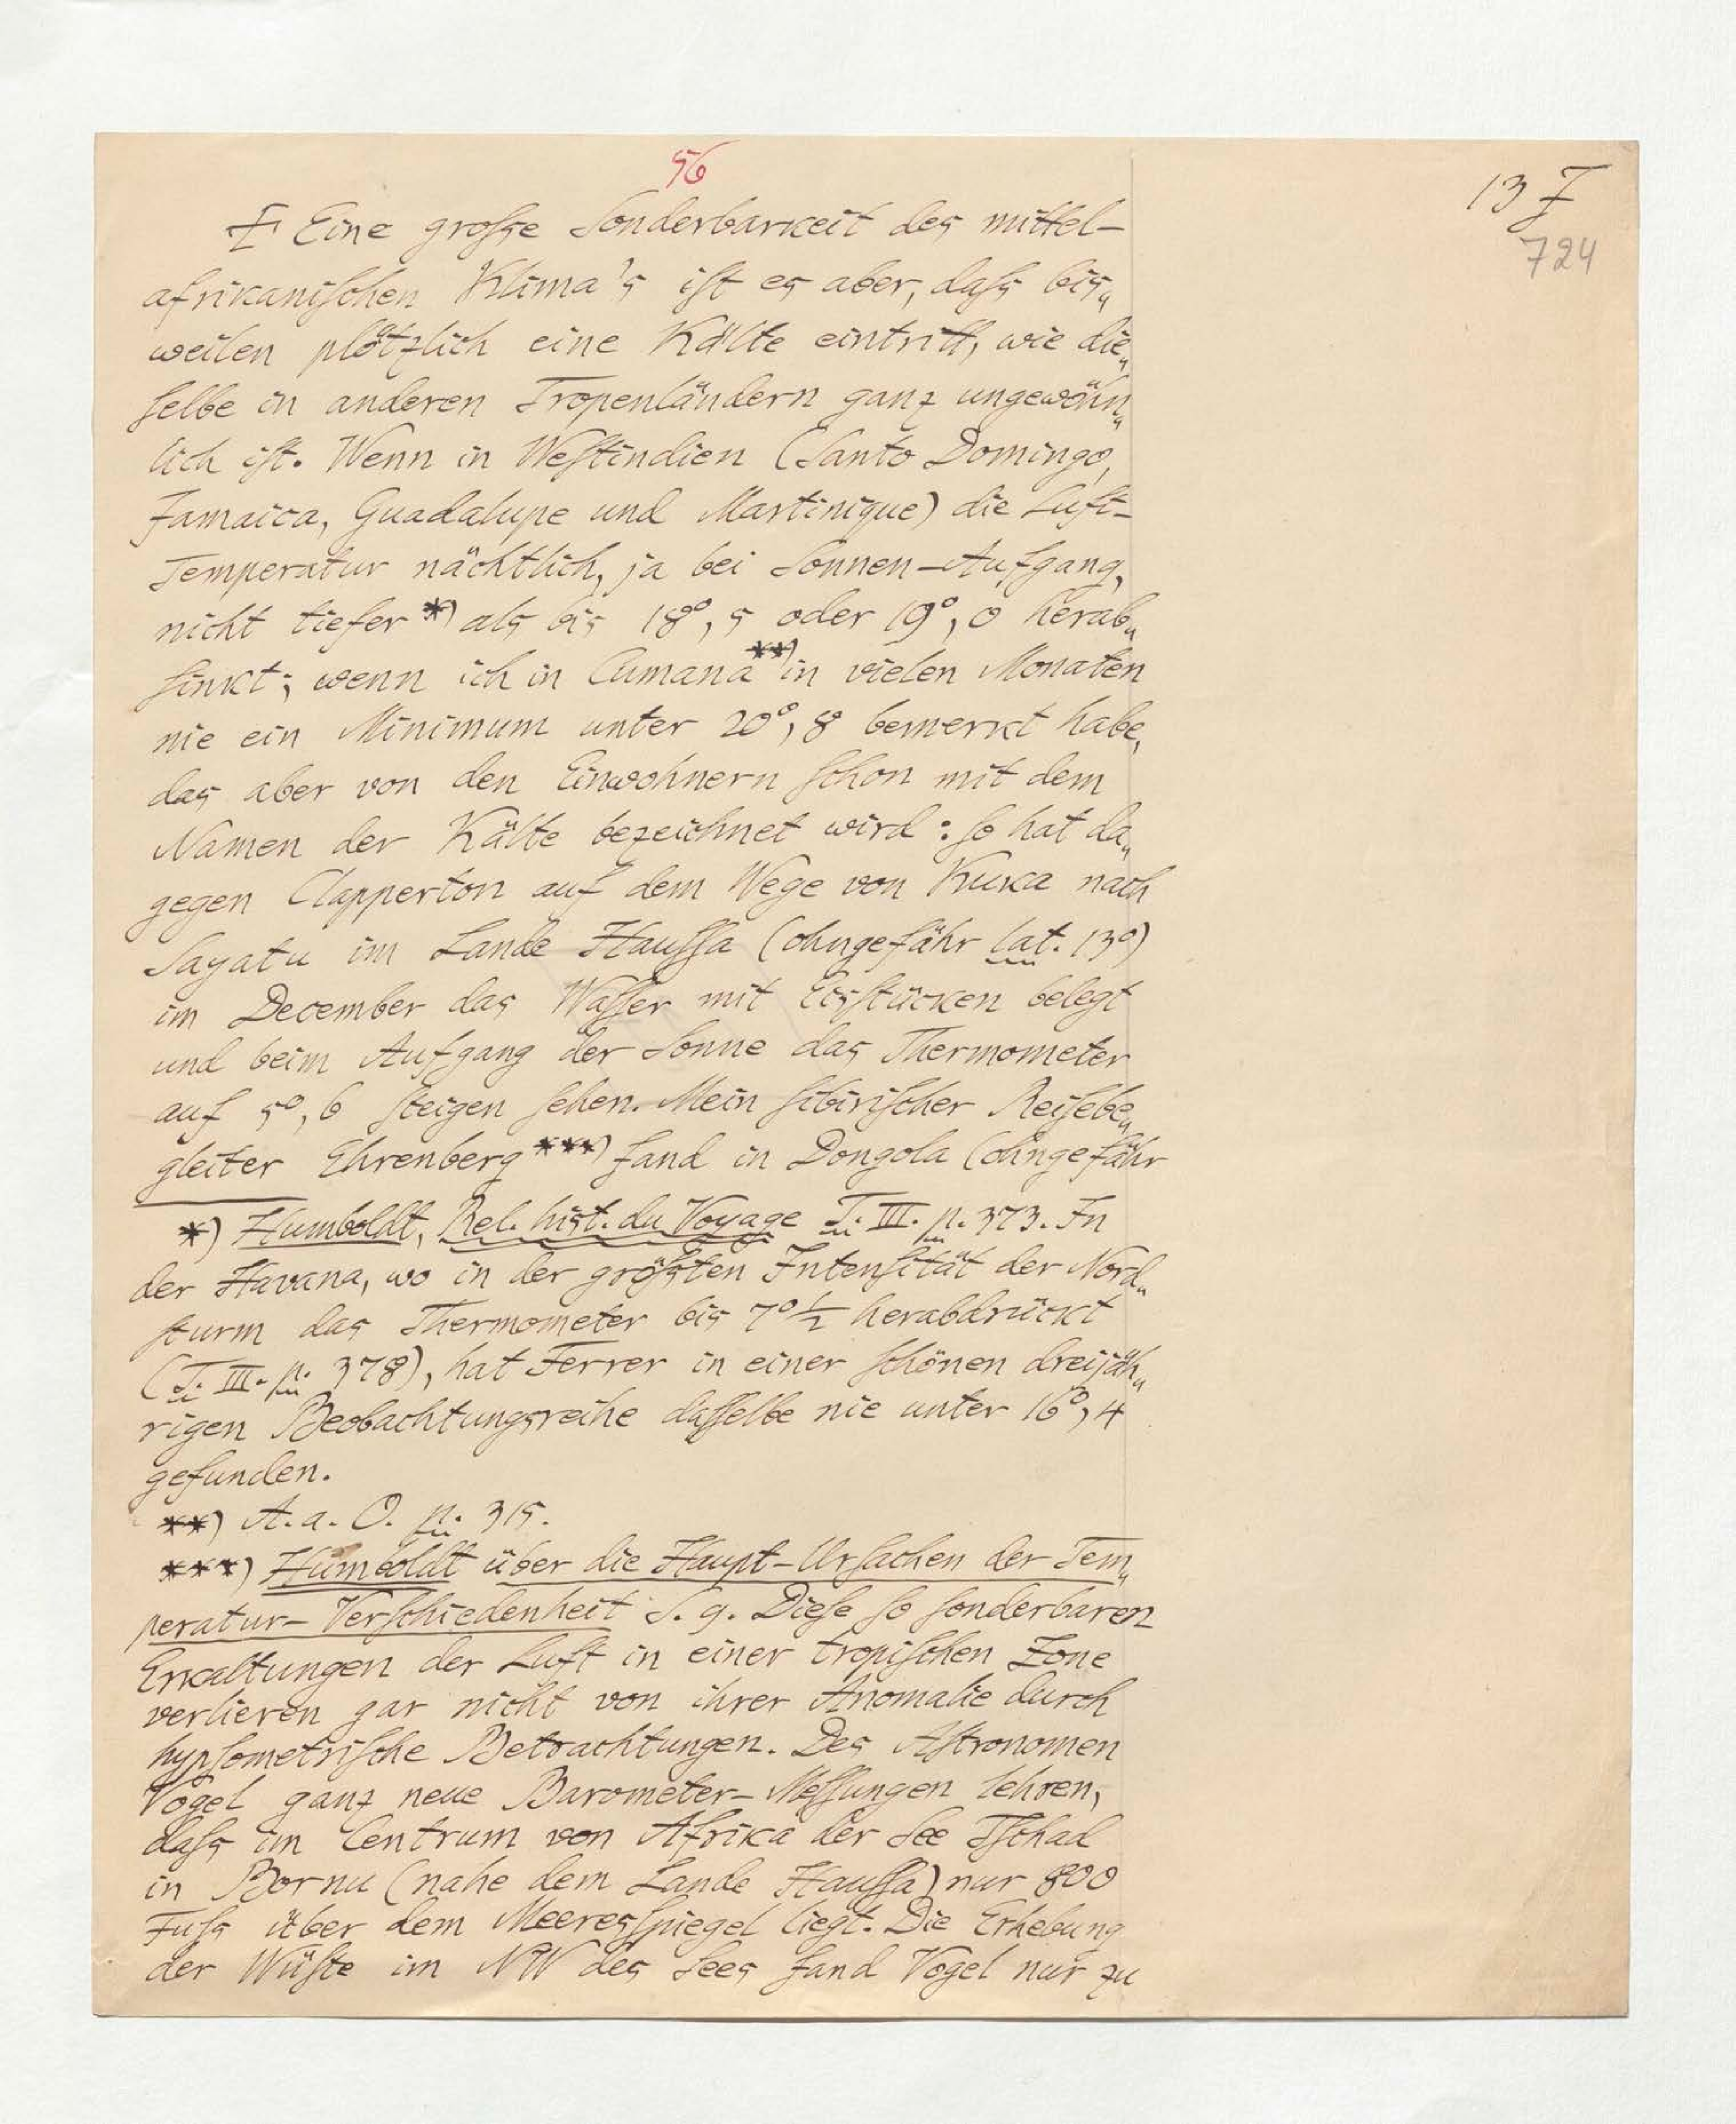 56
13 F
724
F Eine grosse Sonderbarkeit des mittel-
afrikanischen Klima's ist es aber, dass bis„
weilen plötzlich eine Kälte eintritt, wie die„
selbe in anderen Tropenländern ganz ungewöhn„
lich ist. Wenn in Westindien (Santo Domingo,
Jamaica, Guadalupe und Martinique) die Luft-
Temperatur nächtlich, ja bei Sonnen-Aufgang,
nicht tiefer *) als bis 18°,5 oder 19°,0 herab„
sinkt; wenn ich in Cumana **) in vielen Monaten
nie ein Minimum unter 20°,8 bemerkt habe,
das aber von den Einwohnern schon mit dem
Namen der Kälte bezeichnet wird: so hat da„
gegen Clapperton auf dem Wege von Kuka nach
Sagatu im Lande Haussa (ohngefähr lat. 13°)
im December das Wasser mit Eisstücken belegt
und beim Aufgang der Sonne das Thermometer
auf 5°,6 steigen sehen. Mein sibirischer Reisebe„
gleiter Ehrenberg ***) fand in Dongola (ohngefähr
*) Humboldt, Rel. hist. du Voyage T. III. p. 373. In
der Havana, wo in der grössten Intensität der Nord„
sturm das Thermometer bis 7°½ herabdrückt
(T. III. p. 378), hat Ferrer in einer schönen dreijäh„
rigen Beobachtungsreihe dasselbe nie unter 16°,4
gefunden.
**) A. a. O. p. 315.
***) Humboldt über die Haupt-Ursachen der Tem„
peratur-Verschiedenheit S. 9. Diese so sonderbaren
Erkaltungen der Luft in einer tropischen Zone
verlieren gar nicht von ihrer Anomalie durch
hypsometrische Betrachtungen. Des Astronomen
Vogel ganz neue Barometer-Messungen lehren,
dass im Centrum von Afrika der See Tschad
in Bornu (nahe dem Lande Haussa) nur 800
Fuss über dem Meeresspiegel liegt. Die Erhebung
der Wüste im NW des Sees fand Vogel nur zu